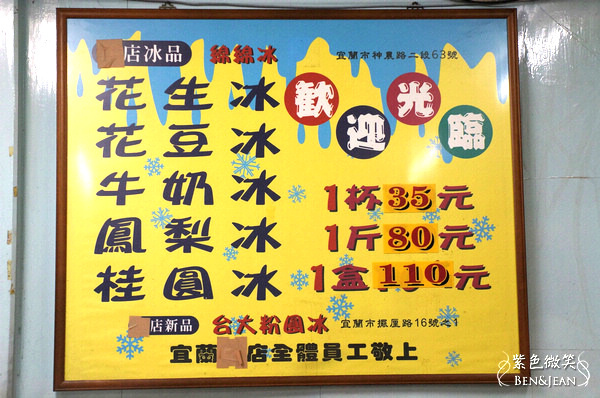 店冰品 綿綿冰 宜蘭市神農路二段63號
花生冰
花豆冰
牛奶冰
鳳梨冰
桂圓冰
歡迎光臨
1杯35元
1斤80元
1盒110元
店新品 台大粉圓冰 宜蘭市振厘路16號之1
宜蘭 店全體員工敬上
紫色微笑
BEN&JEAN